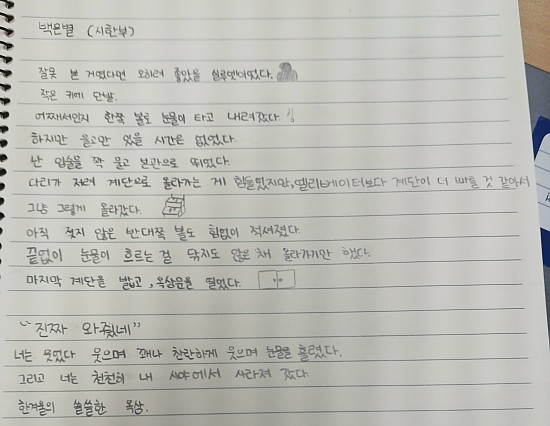 백은별 (시한부)
잘못 본 거였다면 오히려 좋았을 실루엣이었다.
작은 키에 단발.
어째서인지 한쪽 볼로 눈물이 타고 내려갔다
하지만 울고만 있을 시간은 없었다.
난 입술을 꽉 물고 본관으로 뛰었다.
다리가 저려 계단으로 올라가는 게 힘들었지만, 엘리베이터보다 계단이 더 빠를 것 같아서
그냥 그렇게 올라갔다.
아직 젖지 않은 반대쪽 볼도 힘없이 적셔졌다.
끝없이 눈물이 흐르는 걸 닦지도 않은 채 올라가기만 했다.
마지막 계단을 밟고, 옥상문을 열었다.
"진짜 와줬네"
너는 웃었다 웃으며 꽤나 찬란하게 웃으며 눈물를 흘렸다.
그리고 너는 천천히 내 시야에서 사라져 갔다.
한겨울의 쓸쓸한 옥상.